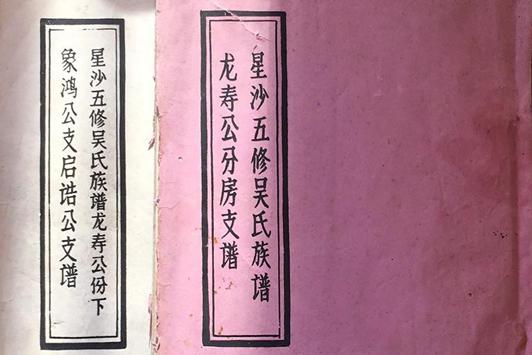 星沙五修吴氏族谱
龙寿公分房支谱
星沙五修吴氏族谱龙寿公份下
象鸿公支启诰公支谱